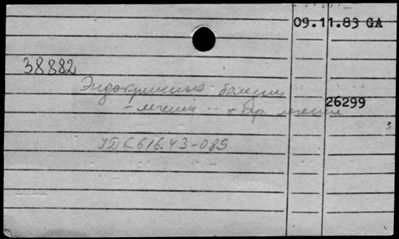 09.11.83 GA
38882
Эндокринные болезни
26299
- лечение
УДК 616.43-085